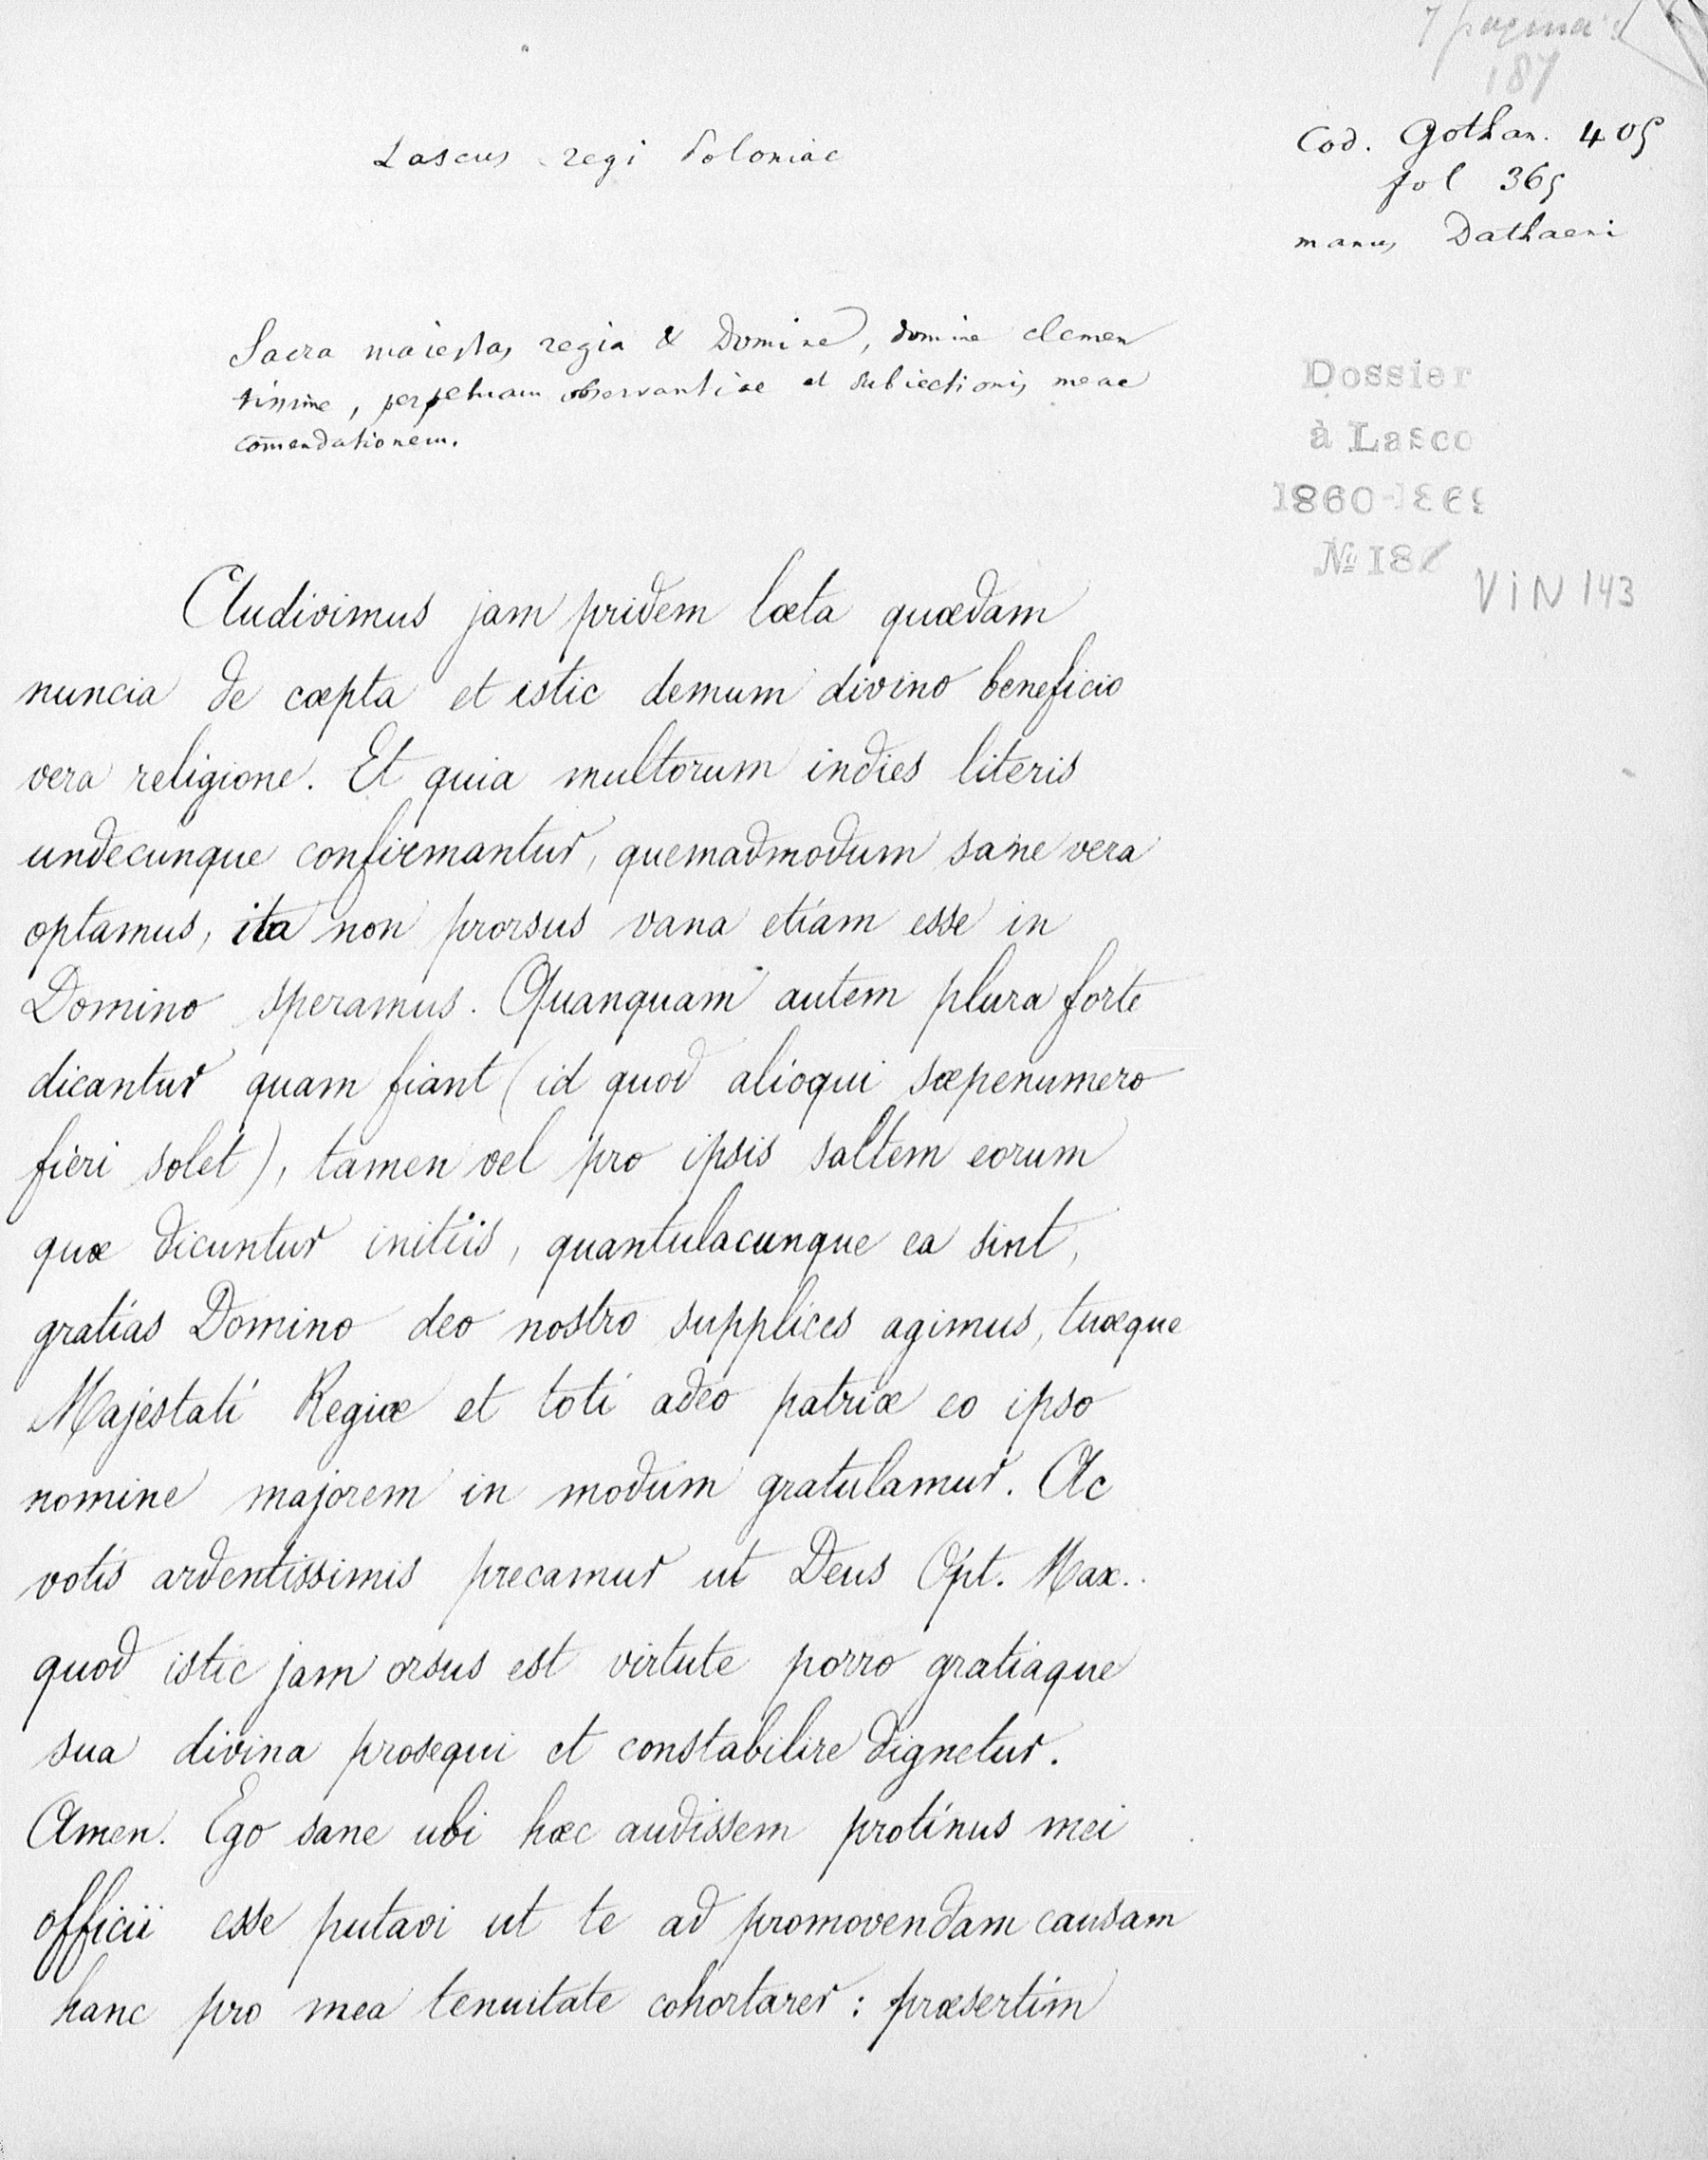 7 pagina's
187
Lascus regi Poloniae
Cod. Gothan. 405
fol 365
manus Dathaeni
Sacra maiestas regia & Domine, domine clemen
tissime, perpetuam observantiae et subiectionis meae
com̄endationem.
Dossier
à Lasco
1860-1869
№ 187
VIN 143
Audivimus jam pridem læta quædam
nuncia de cœpta et istic demum divino beneficio
vera religione. Et quia multorum indies literis
undecunque confirmantur, quemadmodum sane vera
optamus, ita non prorsus vana etiam esse in
Domino speramus. Quanquam autem plura forte
dicantur quam fiant (id quod alioqui sæpenumero
fieri solet), tamen vel pro ipsis saltem eorum
quæ dicuntur initiis, quantulacunque ea sint,
gratias Domino deo nostro supplices agimus, tuæque
Majestati Regiæ et toti adeo patriæ eo ipso
nomine majorem in modum gratulamur. Ac
votis ardentissimis precamur ut Deus Opt. Max..
quod istic jam orsus est virtute porro gratiaque
sua divina prosequi et constabilire dignetur.
Amen. Ego sane ubi hæc audissem protinus mei
officii esse putavi ut te ad promovendam causam
hanc pro mea tenuitate cohortarer: præsertim